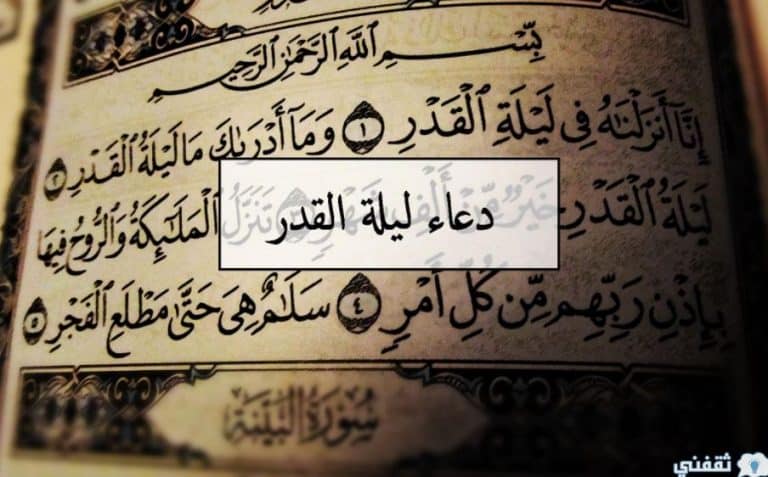 بِسْمِ ٱللَّهِ ٱلرَّحْمَٰنِ ٱلرَّحِيمِ
إِنَّآ أَنزَلْنَٰهُ فِى لَيْلَةِ ٱلْقَدْرِ ١ وَمَآ أَدْرَىٰكَ مَا لَيْلَةُ ٱلْقَدْرِ ٢
لَيْلَةُ ٱلْقَدْرِ خَيْرٌ مِّنْ أَلْفِ شَهْرٍ تَنَزَّلُ ٱلْمَلَٰٓئِكَةُ وَٱلرُّوحُ فِيهَا
دعاء ليلة القدر
بِإِذْنِ رَبِّهِم مِّن كُلِّ أَمْرٍ ٤ سَلَٰمٌ هِىَ حَتَّىٰ مَطْلَعِ ٱلْفَجْرِ ٥
سُورَةُ البَيِّنَةِ
ثقفني